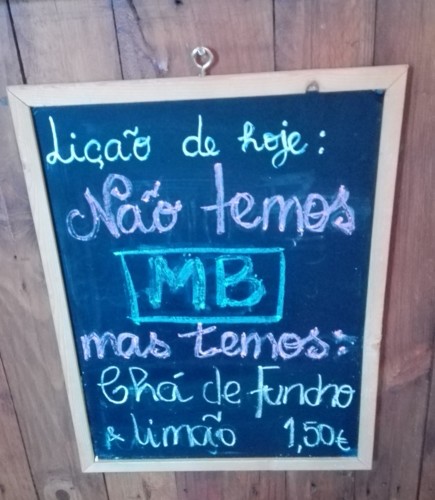 Lição de hoje:
Não temos
MB
mas temos:
Chá de Funcho
& limão 1,50€